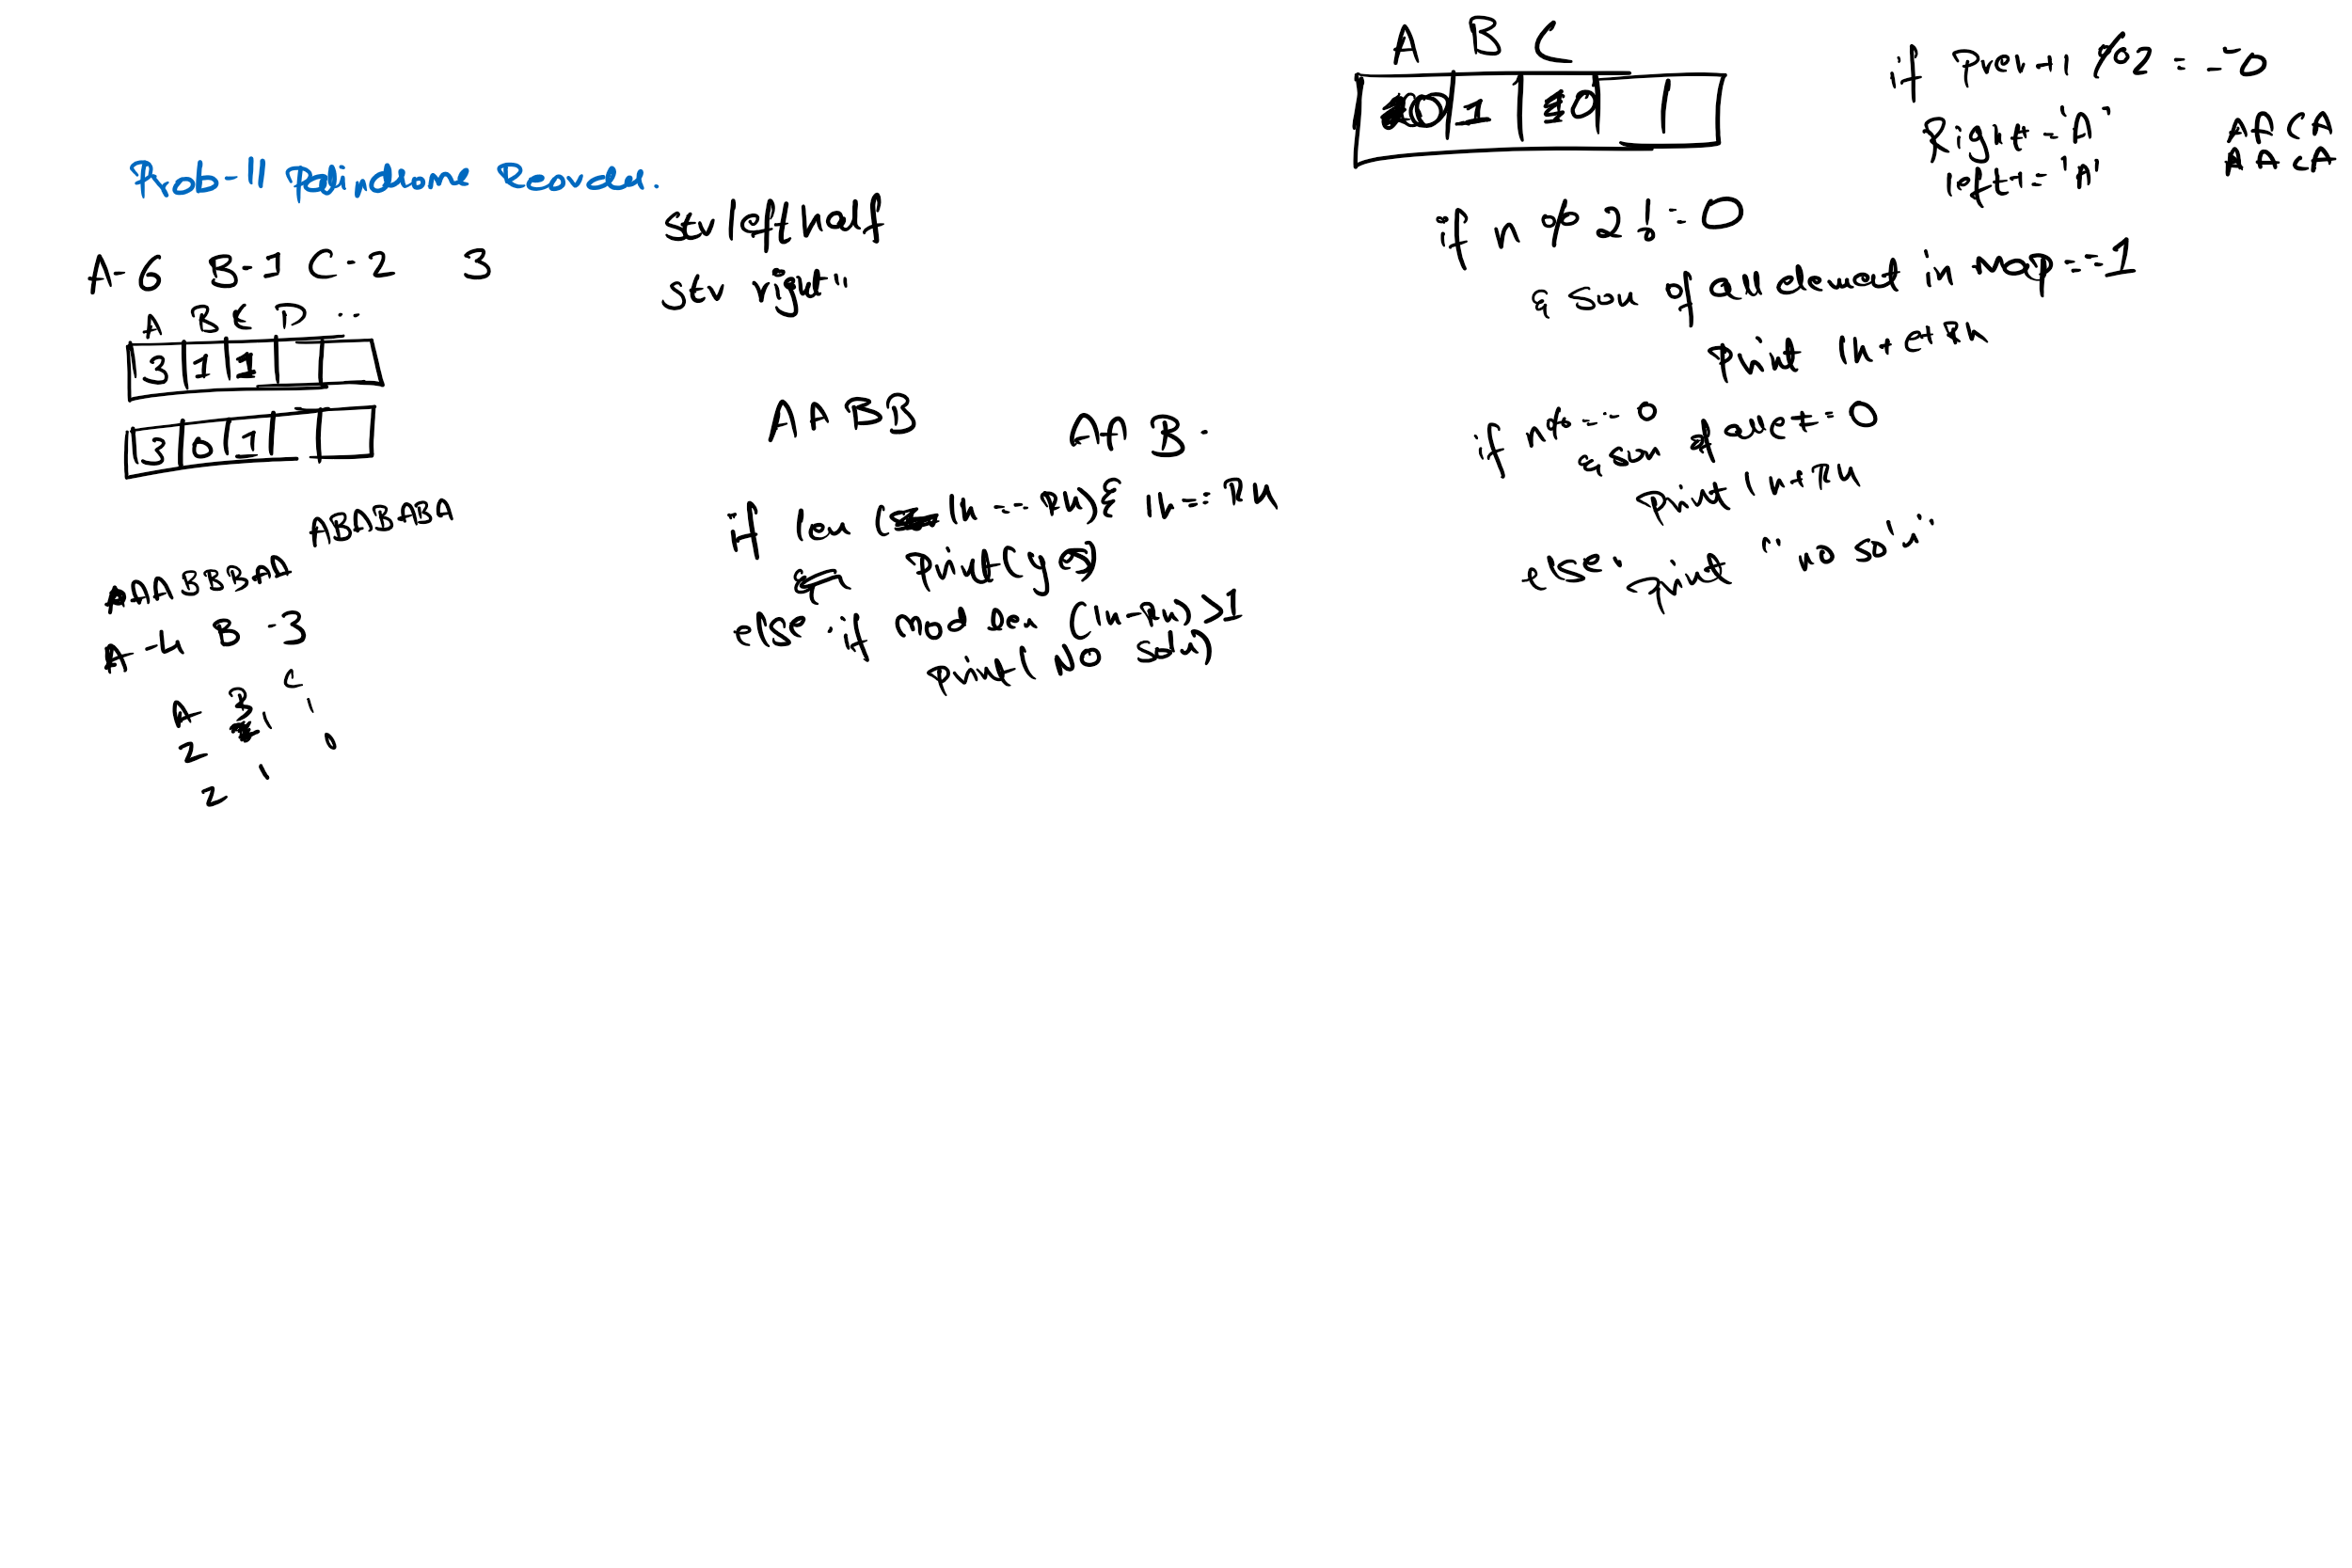 Prob-11 Palindrome Reorder.
A-6 B-1 C-2 3
A B C D ..
3 1 1
3 0 1
AAABBBAA ABABABA
A-4 B-3
A B C
2 1 1
2 1 0
str left half
str right"
AABB
AAB.
if len (lh == RH) & lh == RH
print(yes)
else if mod len (lh-RH) >1
print( No soln)
A B C
0 1 0
if n % 2 != 0
& sum of all element in map == 1
print lh+e+Rh
if n% == 0
& sum of all et = 0
print lh+RH
else print "no sol"
if Prev+1 %2 == 0
Right = "A"
left+= "A"
AACA
AACA